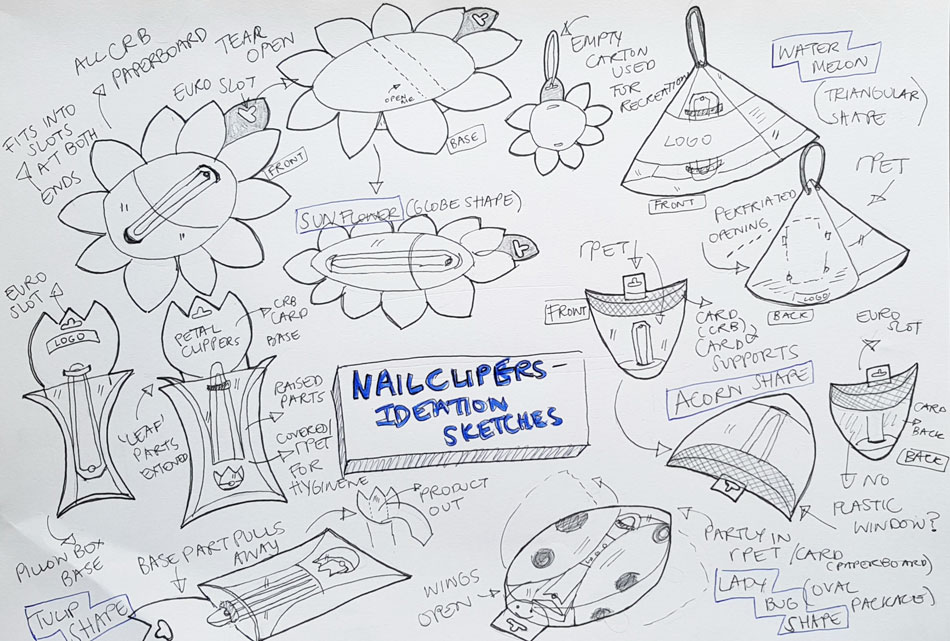 ALL CRB
PAPERBOARD
TEAR
OPEN
EURO SLOT
OPEN
BASE
EMPTY
CARTON
USED
FOR
RECREATION
WATER
MELON
(TRIANGULAR)
SHAPE
LOGO
FRONT
FITS INTO
SLOTS
AT BOTH
ENDS
FRONT
SUNFLOWER (GLOBE SHAPE)
rPET
PERFRIATED
OPENING
LOGO
BACK
EURO
SLOT
LOGO
PETAL
CLIPPERS
CRB
CARD
BASE
'LEAF'
PARTS
EXTENDED
RAISED
PARTS
COVERED/
rPET
FOR
HYGINENE
PILLOW BOX
BASE
NAILCLIPERS-
IDEATION
SKETCHES
rPET
FRONT
CARD
(CRB)
CARD
SUPPORTS
ACORN SHAPE
EURO
SLOT
CARD
BACK
BACK
NO
PLASTIC
WINDOW?
BASE PART PULLS
AWAY
PRODUCT
OUT
TULIP
SHAPE
WINGS
OPEN
PARTLY IN
rPET/CARD
(PAPERBOARD)
LADY
BUG (OVAL
PACKAGE)
SHAPE